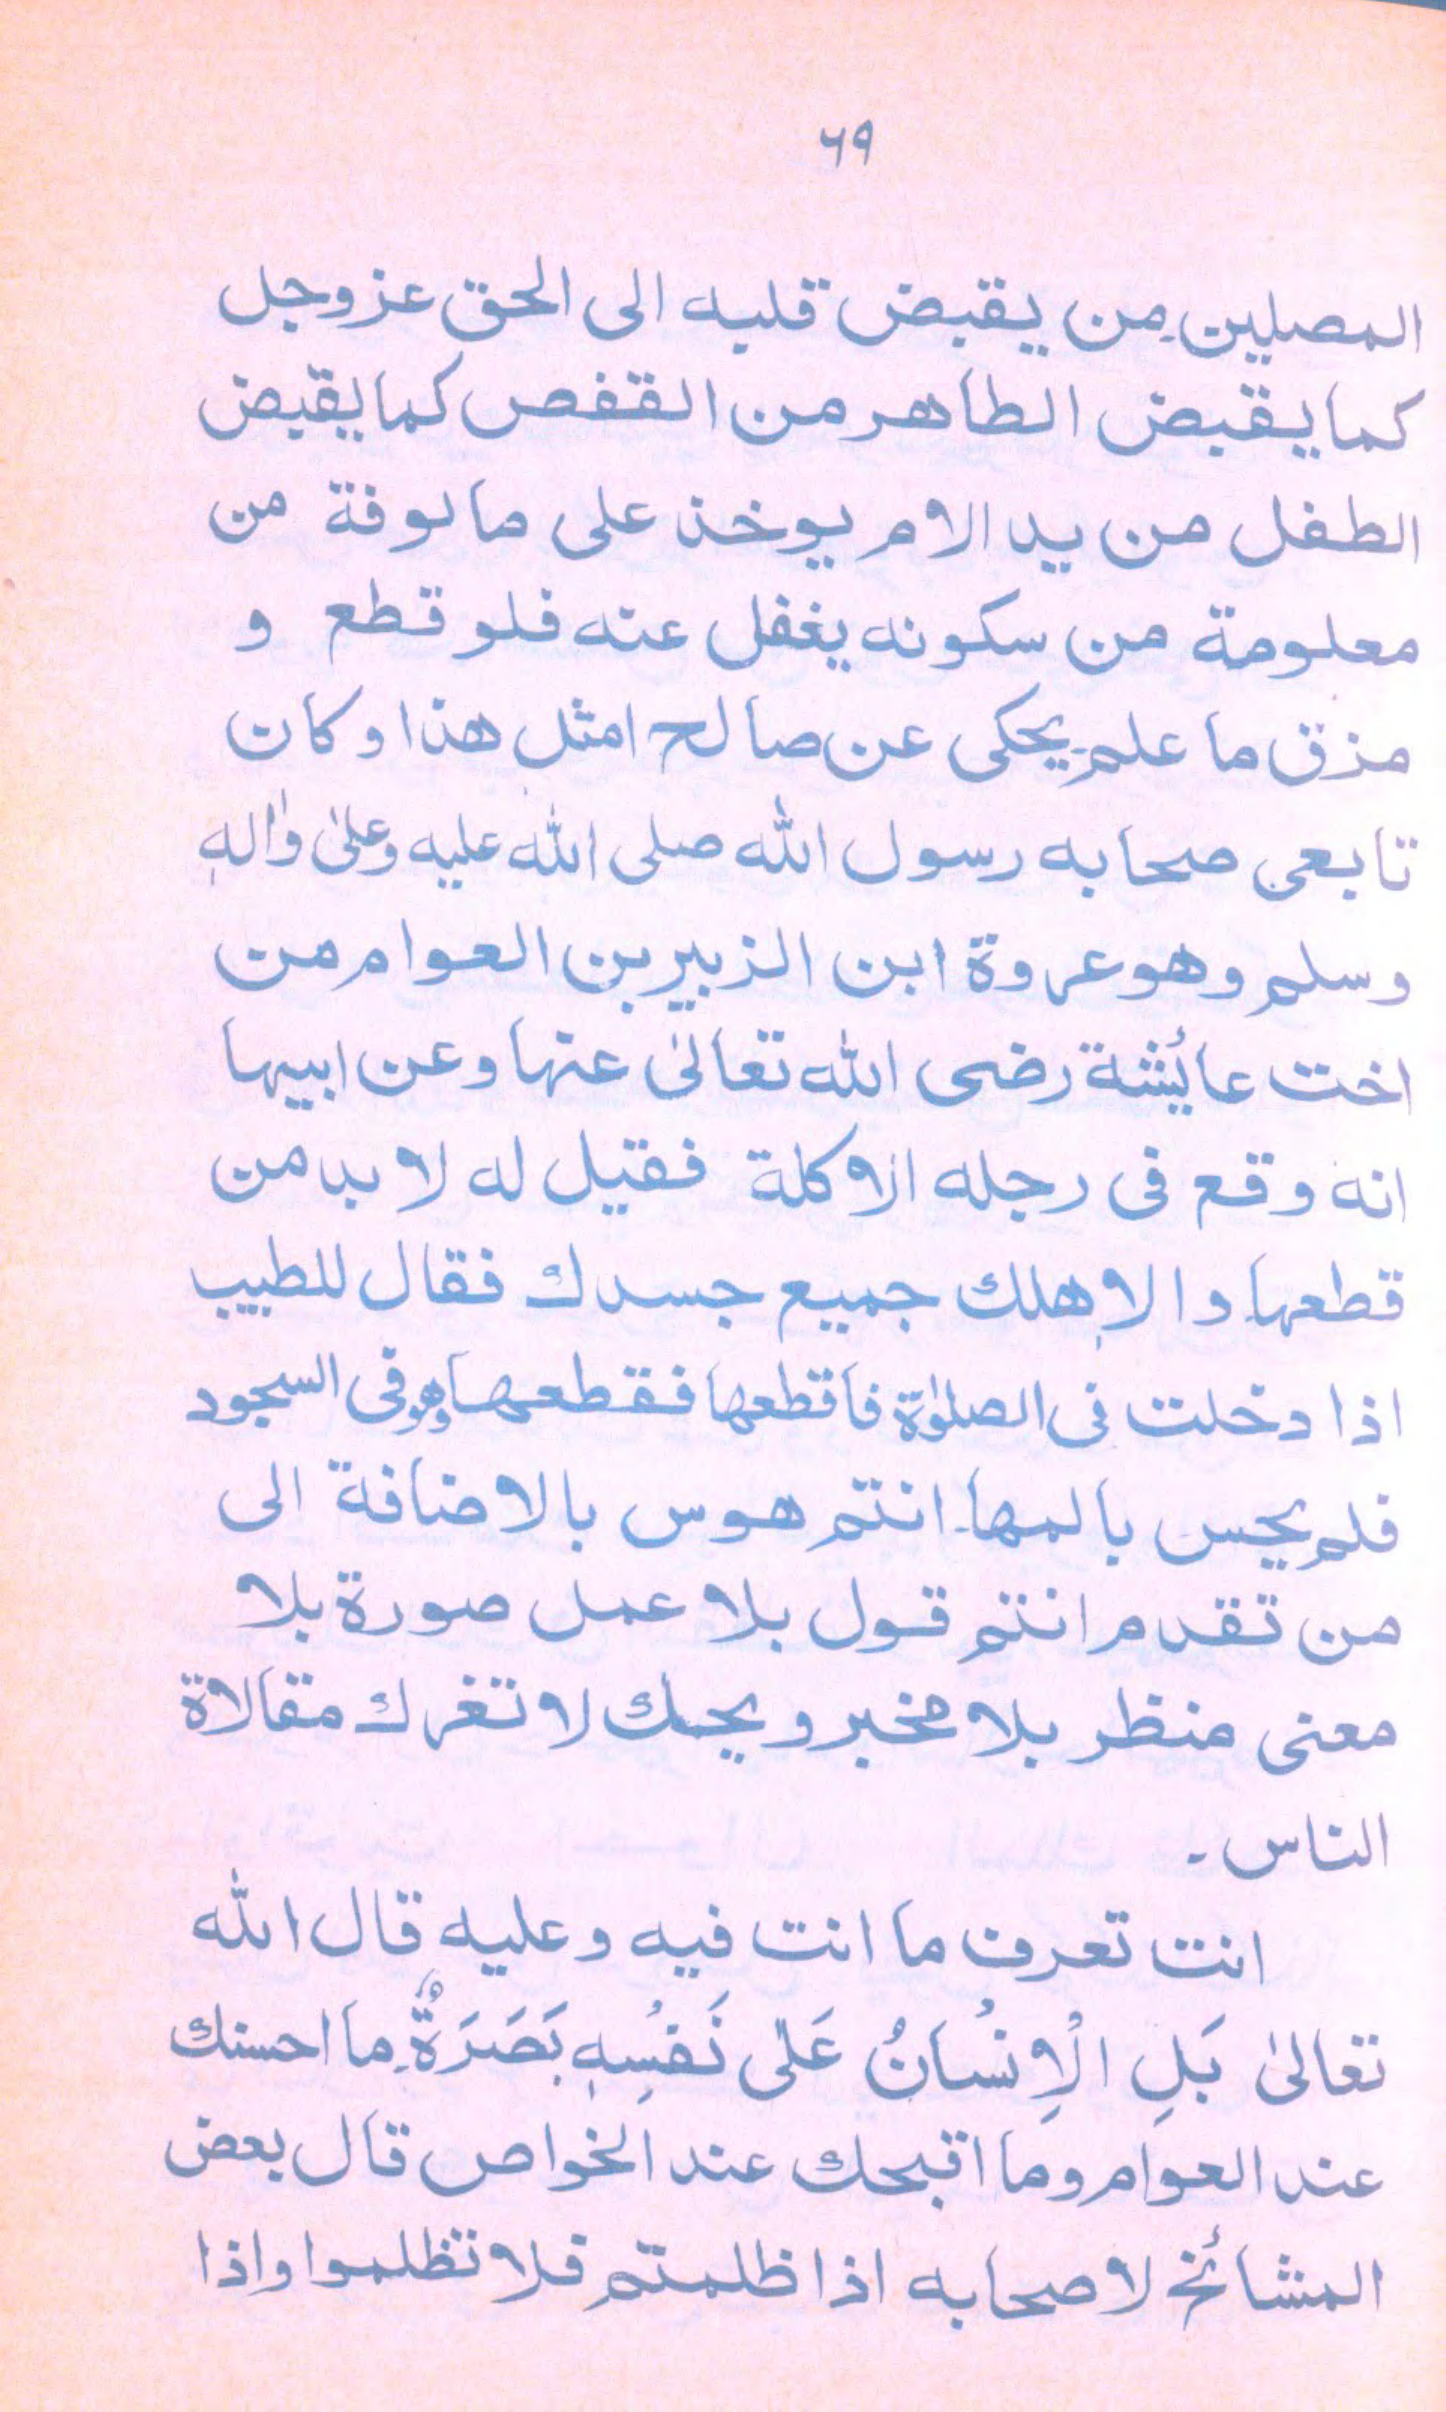 ٦٩
المصلين۔ من يقبض قلبه الى الحق عزوجل
كما يقبض الطاهر من القفص كما يقبض
الطفل من يد الام يوخذ على مالوفة من
معلومة من سكونه يغفل عنه فلو قطع و
مزق ما علم۔ يحكى عن صالح امثل هذا وكان
تابعى صحابه رسول الله صلى الله عليه وعلىٰ واٰلهٖ
وسلم وهو عروة ابن الزبير بن العوام من
اخت عائيشة رضى الله تعالىٰ عنها وعن ابيها
انه وقع فى رجله الاكلة فقيل له لا بد من
قطعها۔ والا هلك جميع جسدك فقال للطبيب
اذا دخلت فى الصلوٰة فاقطعها فقطعها وهو فى السجود
فلم يحس بالمها۔ انتم هوس بالاضافة الى
من تقدم انتم قول بلا عمل صورة بلا
معنى منظر بلا مخبر ويحك لا تغرك مقالاة
الناس۔
انت تعرف ما انت فيه وعليه قال الله
تعالىٰ بَلِ الْاِنْسَانُ عَلٰى نَفْسِهٖ بَصَرَةٌ۔ ما احسنك
عند العوام وما اقبحك عند الخواص قال بعض
المشائخ لاصحابه اذا ظلمتم فلا تظلموا واذا